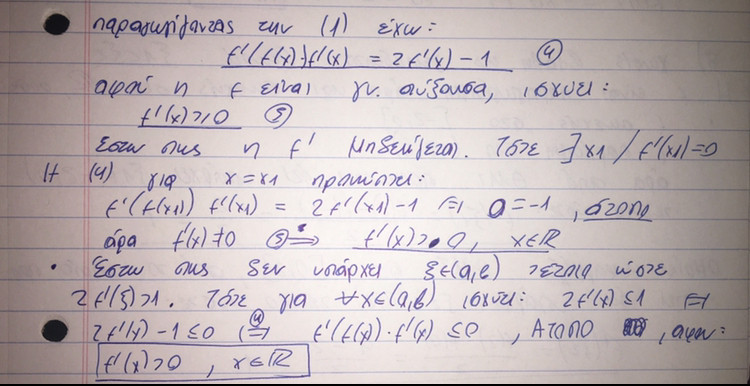 παραγωγίζοντας την (1) έχω:
f'(f(x))f'(x) = 2f'(x) - 1 (4)
αφού η f είναι γν. αύξουσα, ισχύει:
f'(x) ≥ 0 (5)
Έστω πως η f' μηδενίζεται. Τότε ∃ x1 / f'(x1) = 0
Η (4) για x = x1 προκύπτει:
f'(f(x1)) f'(x1) = 2f'(x1) - 1 ⇔ 0 = -1, άτοπο
άρα f'(x) ≠ 0 (5) ⇒ f'(x) > 0, x∈ℝ
• Έστω πως δεν υπάρχει ξ∈(α,β) τέτοιο ώστε
2f'(ξ) > 1. Τότε για ∀x∈(α,β) ισχύει: 2f'(x) ≤ 1 ⇔
2f'(x) - 1 ≤ 0 (4) ⇔ f'(f(x)) · f'(x) ≤ 0, ΑΤΟΠΟ, αφού:
f'(x) > 0, x∈ℝ